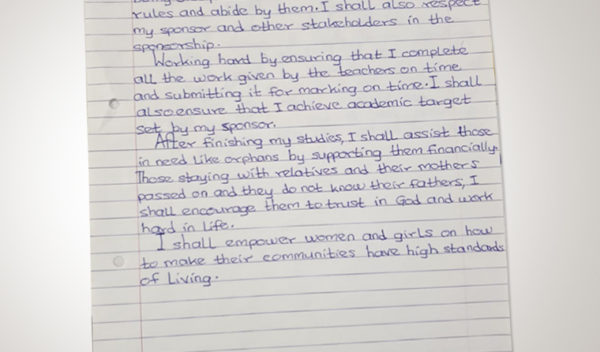 rules and abide by them. I shall also respect
my sponsor and other stakeholders in the
sponsorship.
Working hard by ensuring that I complete
all the work given by the teachers on time
and submitting it for marking on time. I shall
also ensure that I achieve academic target
set by my sponsor.
After finishing my studies, I shall assist those
in need like orphans by supporting them financially.
Those staying with relatives and their mothers
passed on and they do not know their fathers, I
shall encourage them to trust in God and work
hard in life.
I shall empower women and girls on how
to make their communities have high standards
of Living.